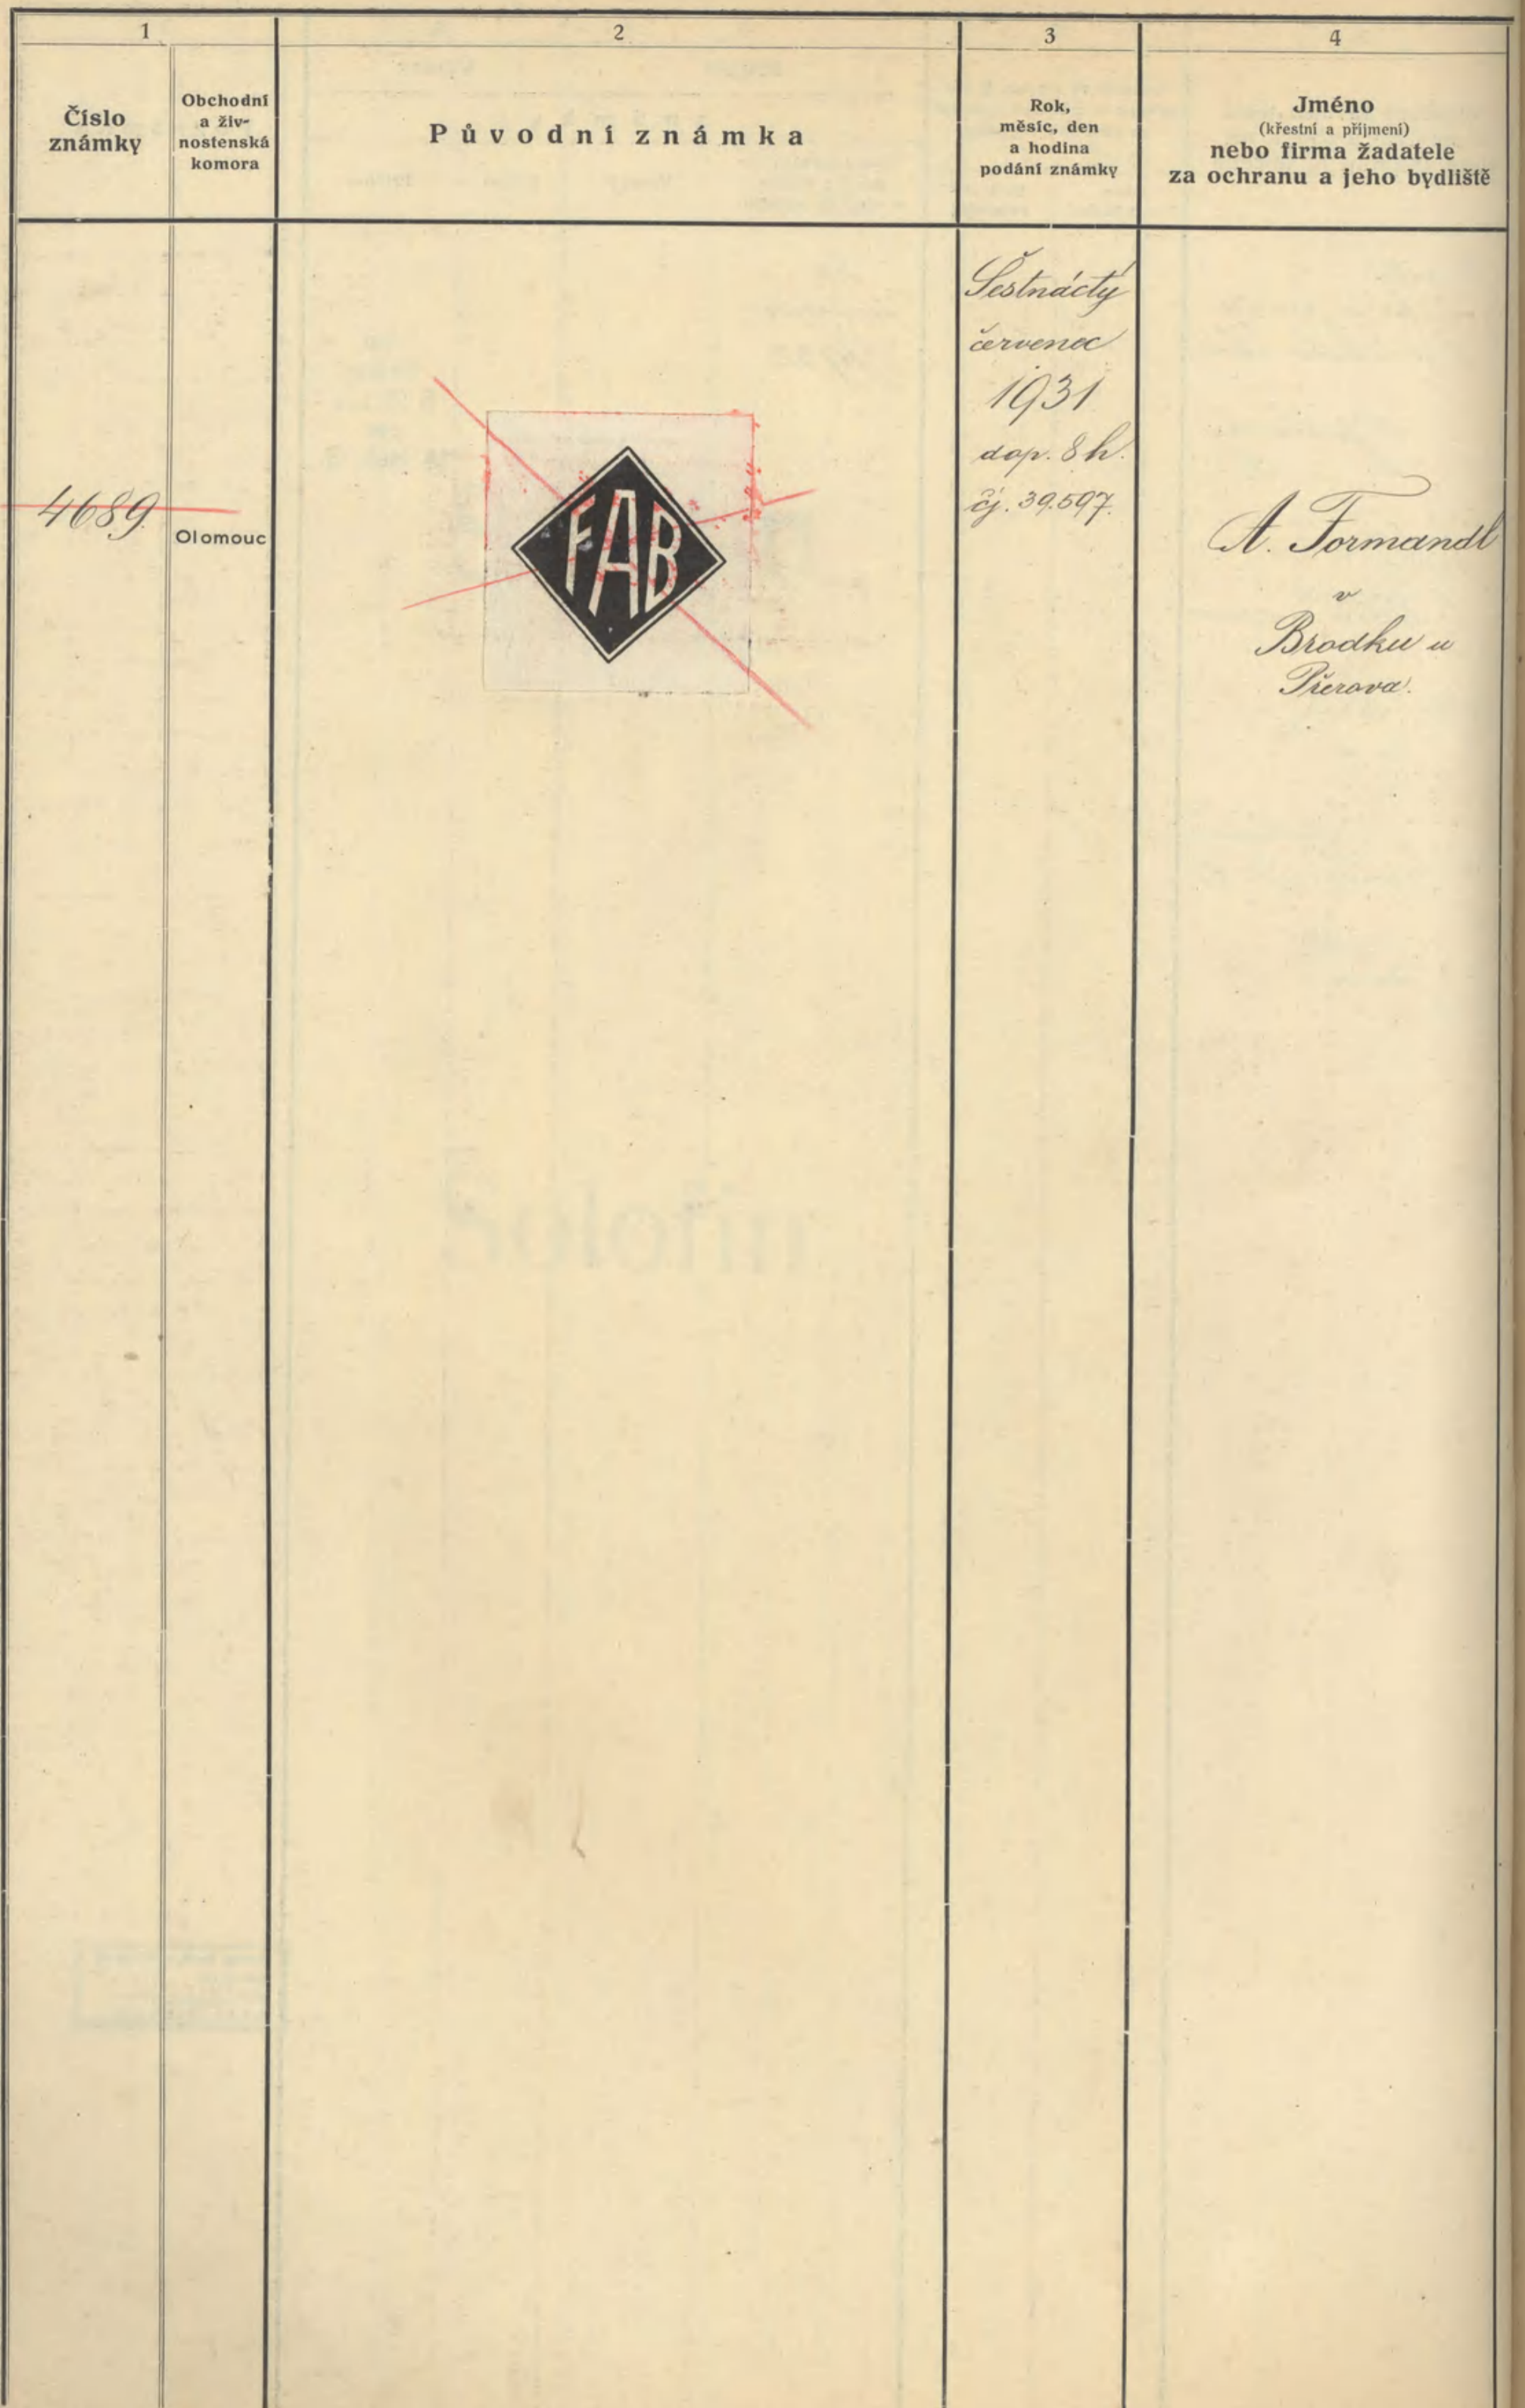 1
2
3
4
Číslo
známky
Obchodní
a živ-
nostenská
komora
Původní známka
Rok,
měsíc, den
a hodina
podání známky
Jméno
(křestní a příjmení)
nebo firma žadatele
za ochranu a jeho bydliště
4689.
Olomouc
FAB
Šestnáctý
červenec
1931
dop. 8 h.
čj. 39.597.
A. Formandl
v
Brodku u
Přerova.